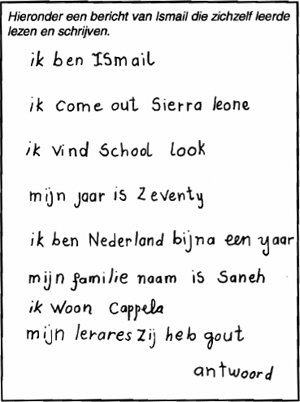 Hieronder een bericht van Ismail die zichzelf leerde
lezen en schrijven.
ik ben ISmail
ik Come out Sierra leone
ik vind School look
mijn jaar is Zeventy
ik ben Nederland bijna een yaar
mijn familie naam is Saneh
ik Woon Cappela
mijn lerares Zij heb gout
antwoord